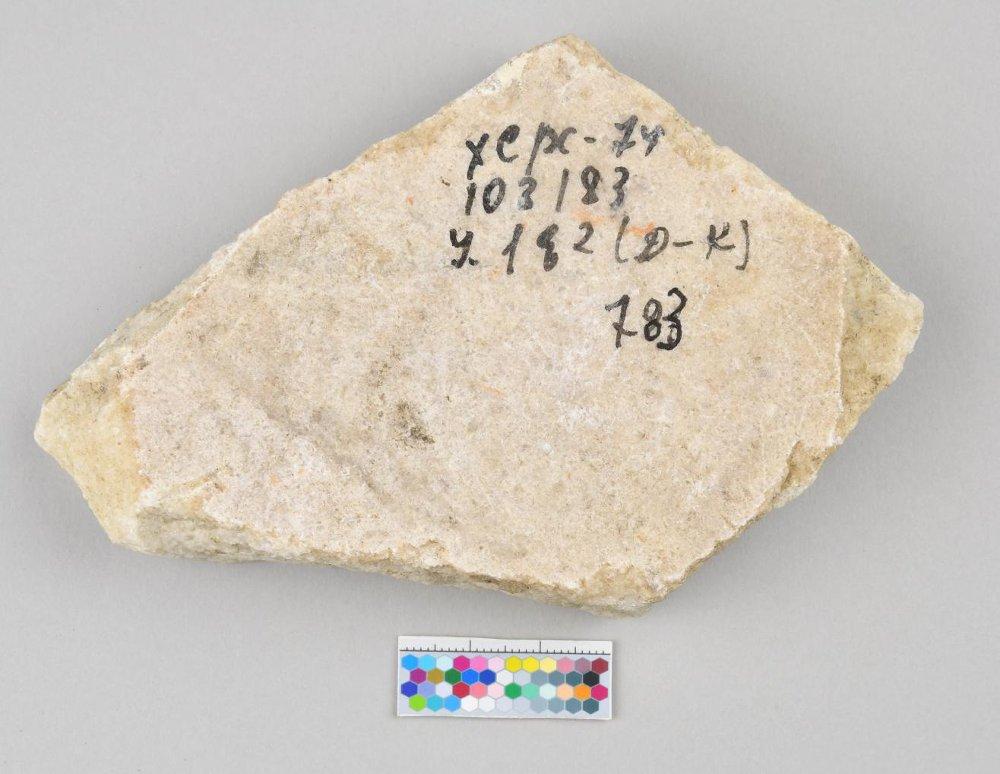 херс-74
103183
у. 182 (Д-К)
783